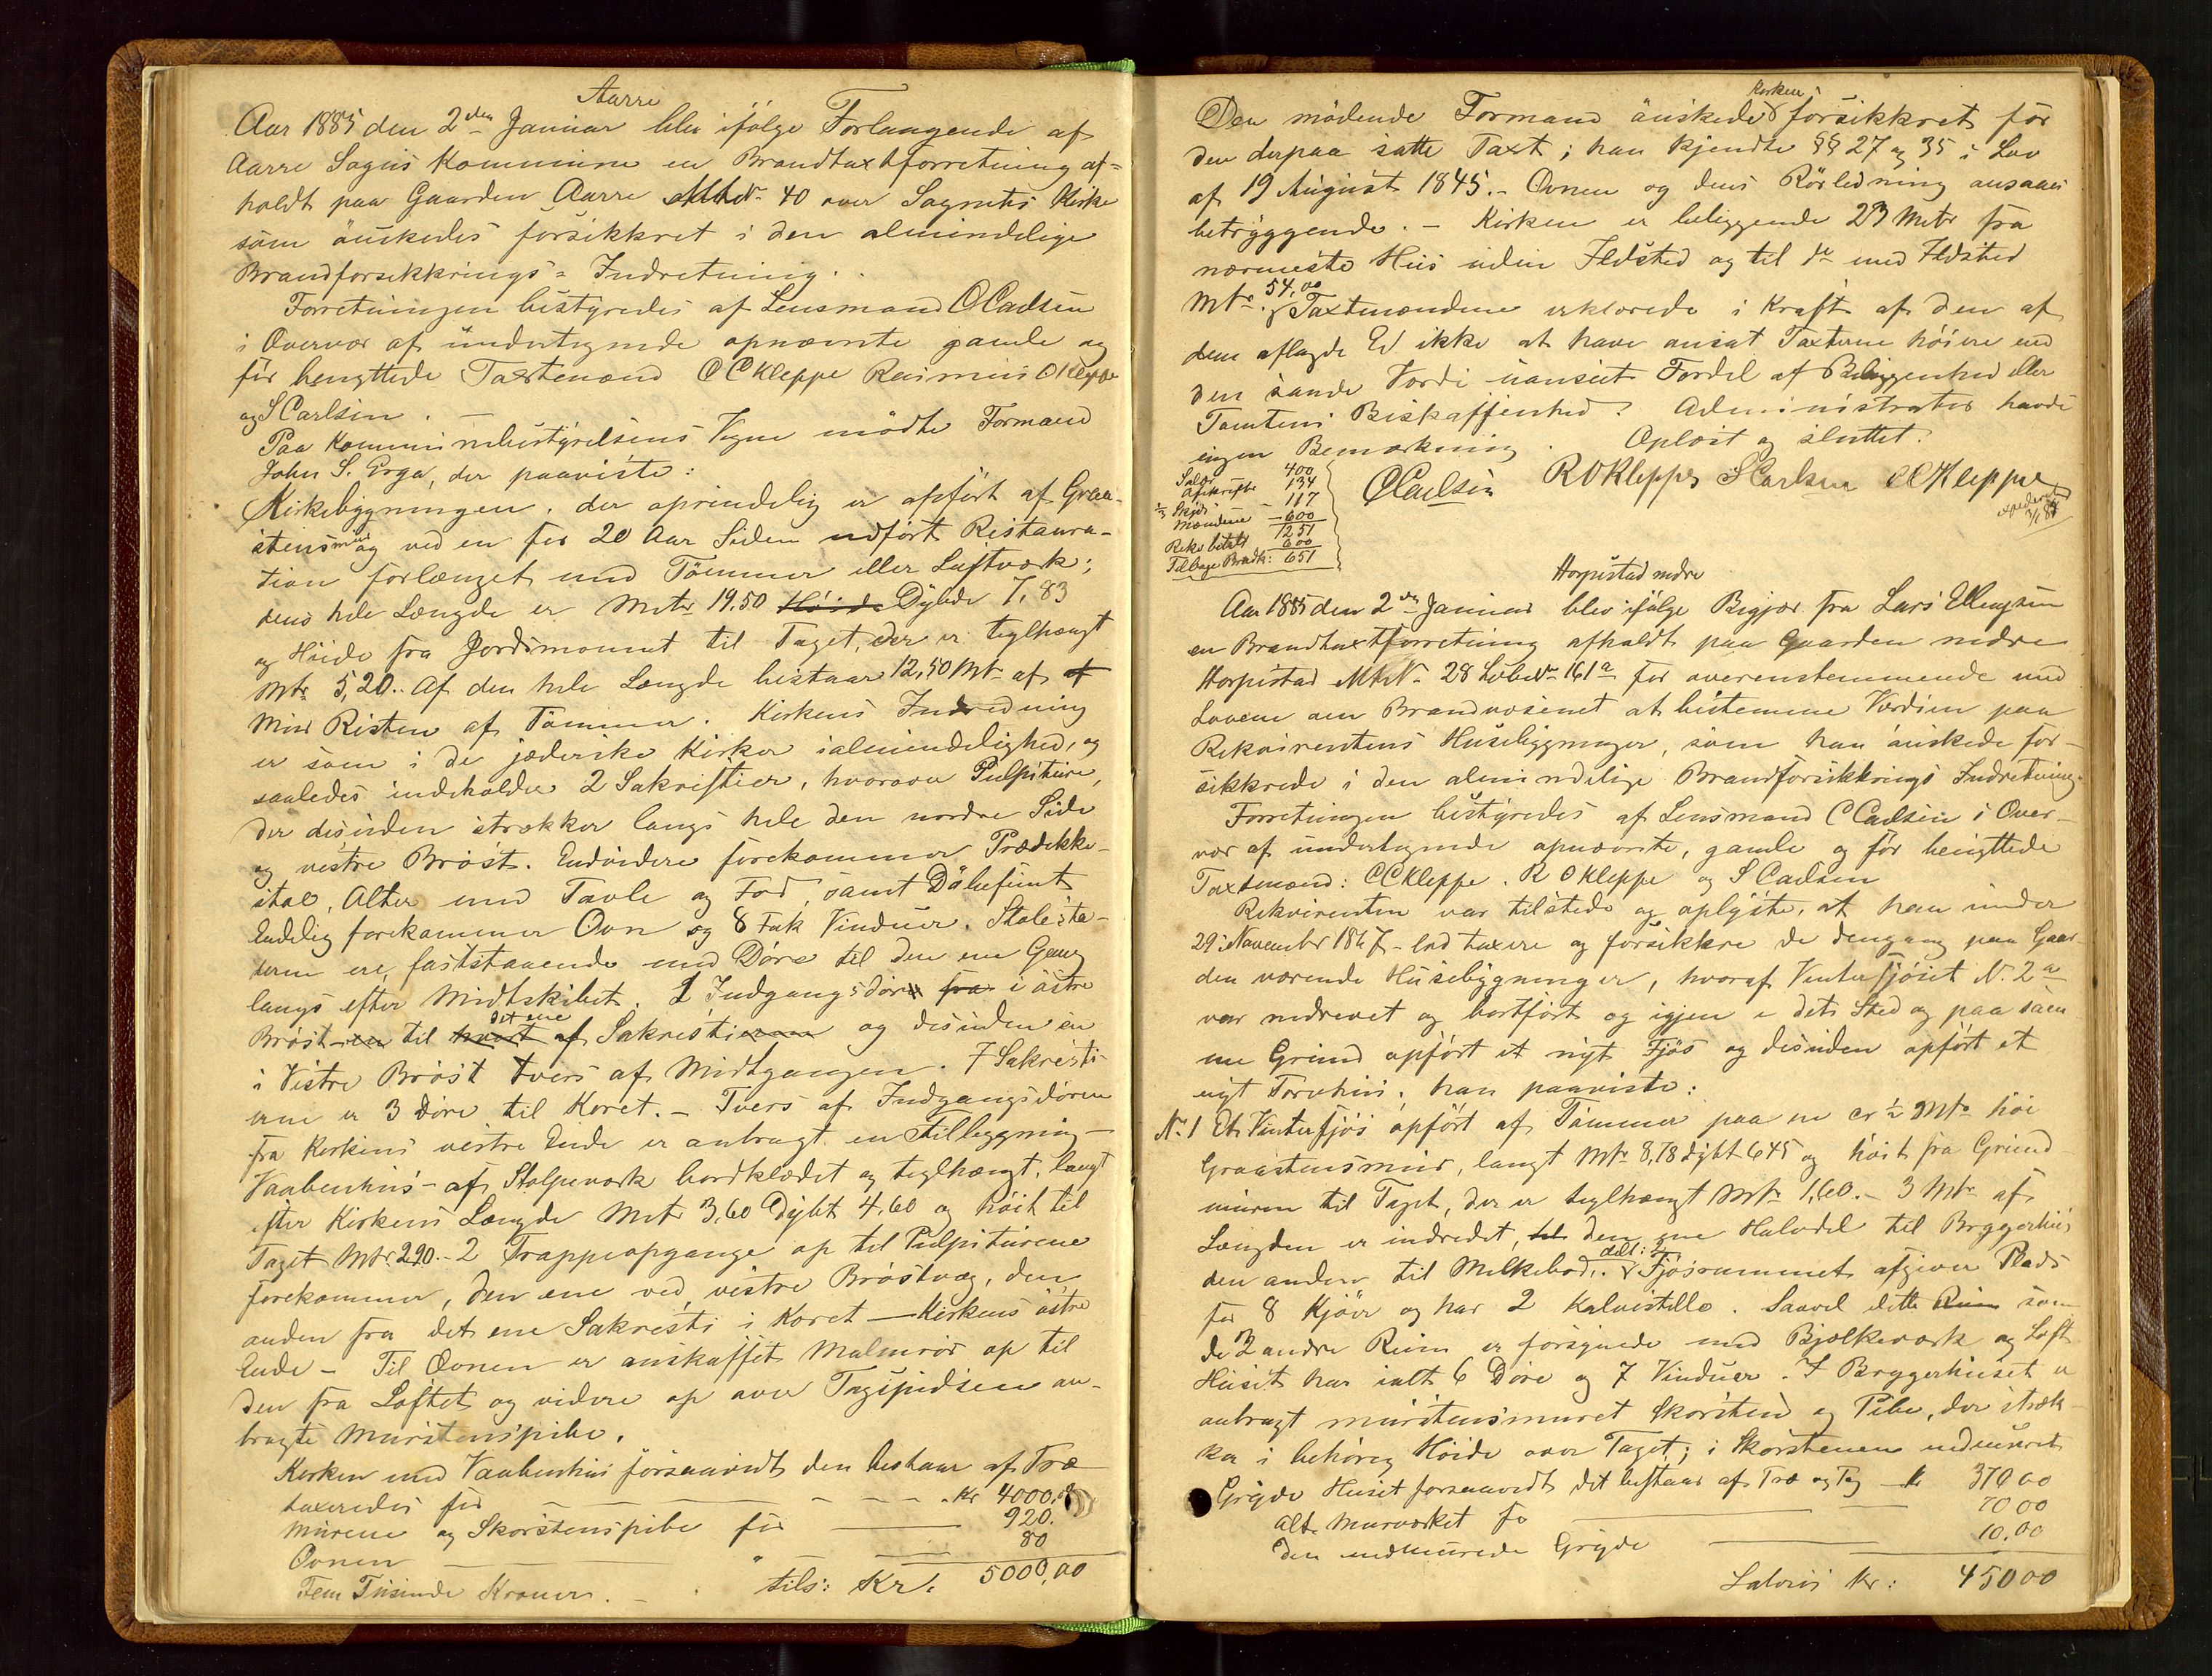 Aarre
Aar 1885 den 2den Januar blev ifølge Forlangende af
Aarre Sogns Kommune en Brandtaxtforretning af=
holdt paa Gaarden Aarre MNo 40 over Sognets Kirke
som önskedes forsikkret i den almindelige
Brandforsikkrings=Indretning.
Forretningen bestyredes af Lensmand O Carlsen
i Overvær af undertegnede opnævnte gamle og
før benyttede Taxtmænd C C Kleppe Rasmus O Kleppe
og S Carlsen. —
Paa Kommunebestyrelsens Vegne mødte Formand
John S. Erga, der paaviste:
Kirkebygningen, der oprindelig er opført af Graa-
stensmur og ved en for 20 Aar Siden udført Restaura-
tion forlænget med Tömmer eller Laftværk;
dens hele Længde er Metr 19.50 Höide Dybde 7,83
og Höide fra Jordsmonnet til Taget, der er teglhængt
Mtr 5,20. Af den hele Længde bestaar 12,50 Mtr af
Mur Resten af Tömmer. Kirkens Indredning
er som i de jæderske Kirker ialmindelighed, og
saaledes indeholder 2 Sakristier, hvorover Pulpiture,
der desuden strækker langs hele den nordre Side
og vestre Bröst. Endvidere forekommer Prædikke-
stol, Alter med Tavle og Fod, samt Döbefunt
Endelig forekommer Ovn og 8 Fak Vinduer. Stolesta-
derne ere faststaaende med Döre til den ene Gang
langs efter Midtskibet. 1 Indgangsdör fra i östre
Bröst en til hvert af det ene Sakristierne og desuden en
i Vestre Bröst tvers af Midtgangen. I Sakristi
erne er 3 Döre til Koret. – Tvers af Indgangsdören
fra Kirkens vestre Ende er anbragt en Tilbygning –
Vaabenhus – af Stolpeværk bordklædet og teglhængt, langt
efter Kirkens Længde Metr 3,60 Dybt 4,60 og höit til
Taget Mtr. 2.90. – 2 Trappeopgange op til Pulpiturene
forekommer, den ene ved vestre Bröstvæg, den
anden fra det ene Sakristi i Koret – Kirkens östre
Ende – Til Ovnen er anskaffet Malmrör op til
den fra Loftet og videre op over Tagspidsen an-
bragte Murstenspibe.
Kirken med Vaabenhus forsaavidt den bestaar af Træ
taxeredes for — — — Kr 4000.00
Murene og Skorstenspibe for — 920.
Ovnen — " — 80
Fem Tusinde Kroner. — tils: Kr. 5000,00
Den mödende Formand önskede Kirken forsikkret for
den derpaa satte Taxt; han kjendte §§ 27 og 35 i Lov
af 19 August 1845. – Ovnen og dens Rörledning ansaaes
betryggende. – Kirken er beliggende 23 Metr fra
nærmeste Hus uden Ildsted og til do med Ildsted
Mtr. 54,00 Taxtmændene erklærede i Kraft af den af
dem aflagde Ed ikke at have ansat Taxterne höiere end
den sande Værdi uanseet Fordel af Beliggenhed eller
Tomtens Beskaffenhed. Administrator havde
ingen Bemærkning. Oplæst og sluttet.
O Carlsen R O Kleppe S Carlsen C C Kleppe
Salær 400
Afskrifter 134
1/3 Skyds – 117
Mændene – 600
1251
Rekv betalt 600
Tilbage Brandk: 651
expederet
3/1 85
Horpestad nedre
Aar 1885 den 2den Januar blev ifølge Begjær. fra Lars Ellingsen
en Brandtaxtforretning afholdt paa Gaarden nedre
Horpestad MNo 28 LöbeNo 161a for overensstemmende med
Lovene om Brandvæsenet at bestemme Værdien paa
Rekvirentens Husebygninger, som han önskede for-
sikkrede i den almindelige Brandforsikkrings Indretning.
Forretningen bestyredes af Lensmand O Carlsen i Over-
vær af undertegnede opnævnte, gamle og för benyttede
Taxtmænd: C C Kleppe. R O Kleppe og S Carlsen
Rekvirenten var tilstede og oplyste, at han under
29: November 1867 – lod taxere og forsikkre de dengang paa Gaar-
den værende Husebygninger, hvoraf Vinterfjöset N. 2a
var nedrevet og bortfört og igjen i dets Sted og paa sam
me Grund opfört et nyt Fjös og desuden opfört et
nyt Torvhus. han paaviste:
No 1 Et Vinterfjös opfört af Tömmer paa en cr ½ Mtr höi
Graastensmur, langt Mtr 8,78 dybt 6 45 og höit fra Grund
muren til Taget, der er teglhængt Mtr 1,60. – 3 Mtr af
Længden er indredet, til den ene Halvdel til Bryggerhus
den anden til Melkebod. delt: 2 Fjösrummet afgiver Plads
for 8 Kjöer og har 2 Kalvestelle. Saavel dette Rum som
de 2 andre Rum er forsynede med Bjælkeværk og Loft
Huset har ialt 6 Döre og 7 Vinduer. I Bryggerhuset er
anbragt murstensmuret Skorsten og Pibe, der stræk-
ker i behörig Höide over Taget; i Skorstenen indmuret
Gryde Huset forsaavidt det bestaar af Træ og Tag – Kr 370 00
alt Murværket for — 70 00
den indmurede Gryde — 10.00
Lateris Kr: 450 00